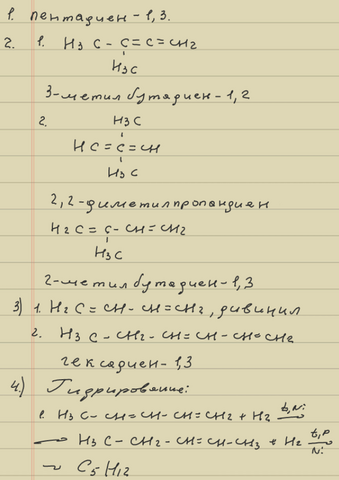 1. пентадиен-1,3.
2. 1. H₃C - C = C = CH₂
H₃C
3-метилбутадиен-1,2
2. H₃C
HC = C = CH
H₃C
2,2-диметилпропандиен
H₂C = C - CH = CH₂
H₃C
2-метилбутадиен-1,3
3) 1. H₂C = CH - CH = CH₂, дивинил
2. H₃C - CH₂ - CH = CH - CH = CH₂
гексадиен-1,3
4) Гидрирование:
1. H₃C - CH = CH - CH = CH₂ + H₂ t, Ni →
→ H₃C - CH₂ - CH = CH - CH₃ + H₂ t, P Ni →
→ C₅H₁₂